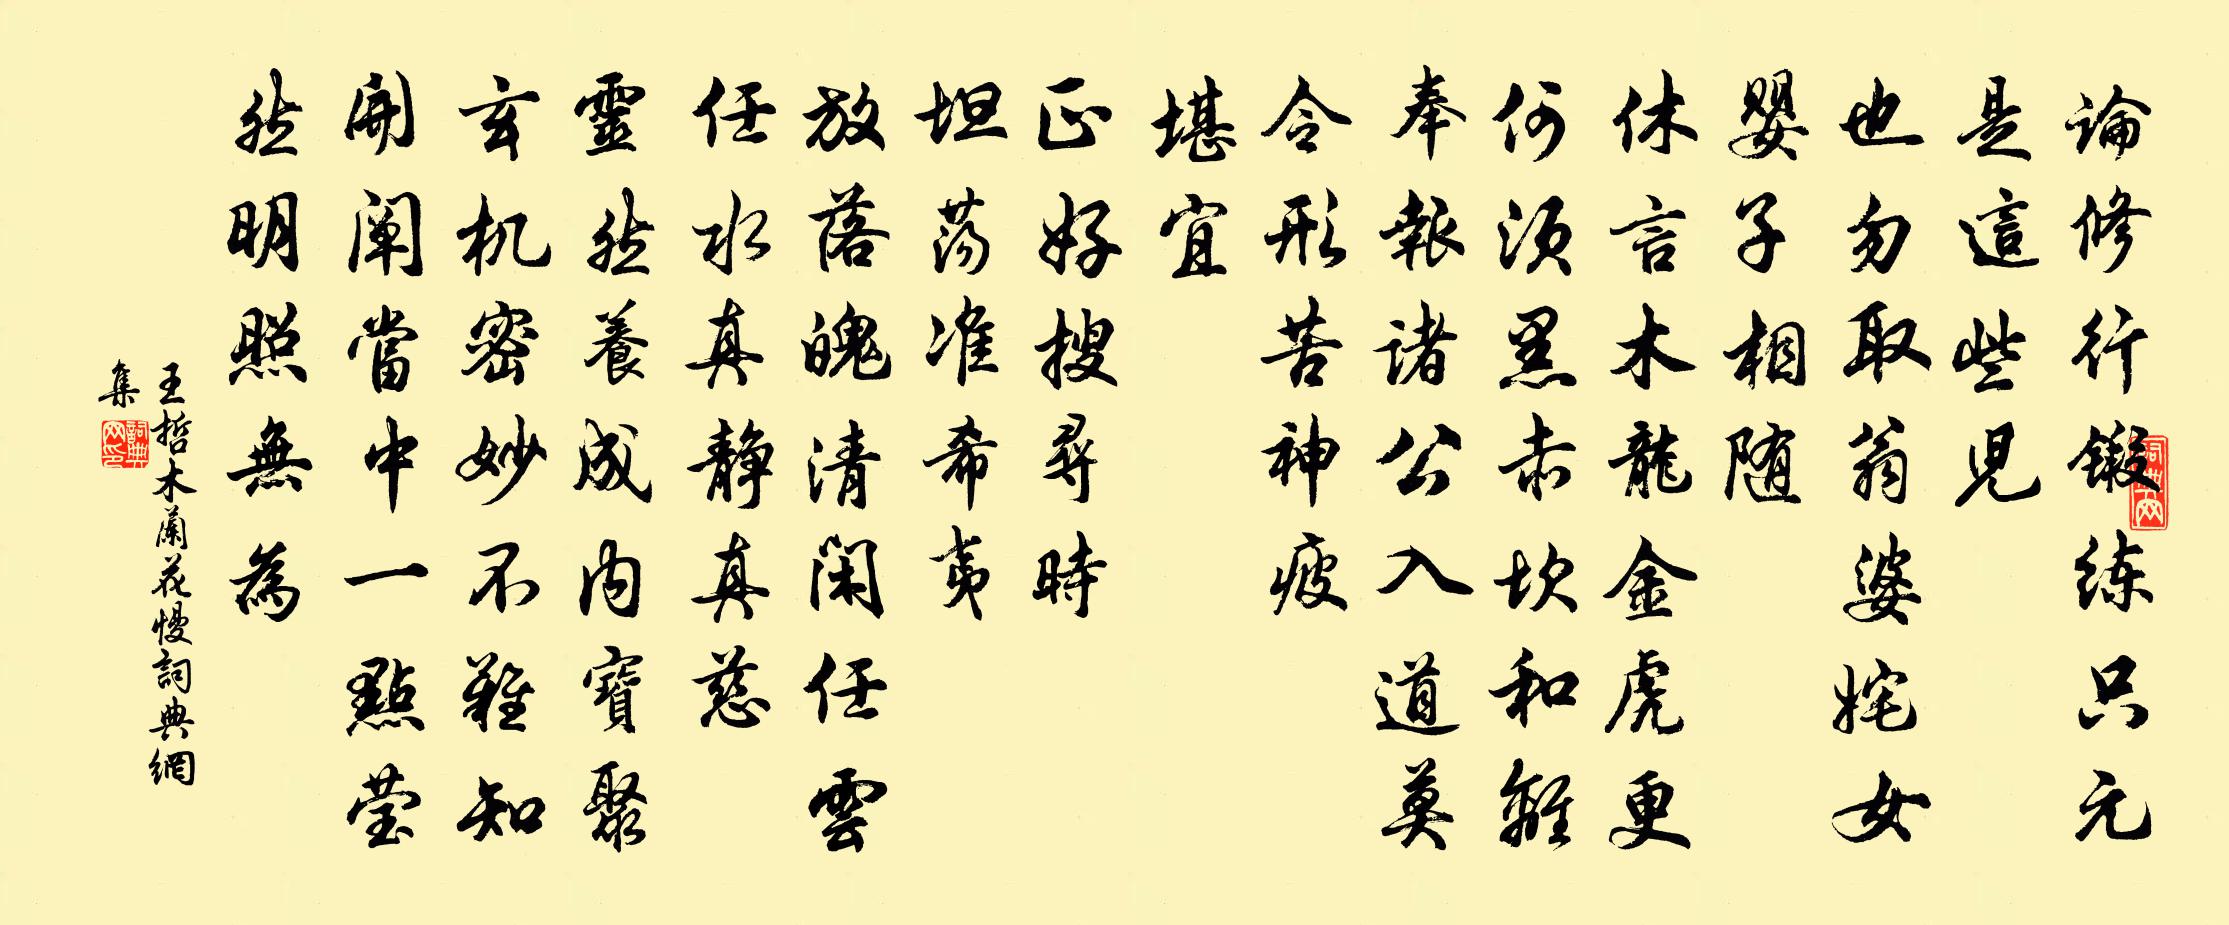 論修行鍛练只元
是這些兒
也勿取翁婆姹女
嬰子相随
休言木龍金虎更
何须黑赤坎和離
奉報諸公入道莫
令形苦神疲
堪宜
正好搜尋時
坦荡准希夷
放落魄清闲任雲
任水真静真慈
靈然養成内寶聚
玄机密妙不難知
開阐當中一點莹
然明照無為
王哲木蘭花慢詞典網
集
詞典网
詞典网印